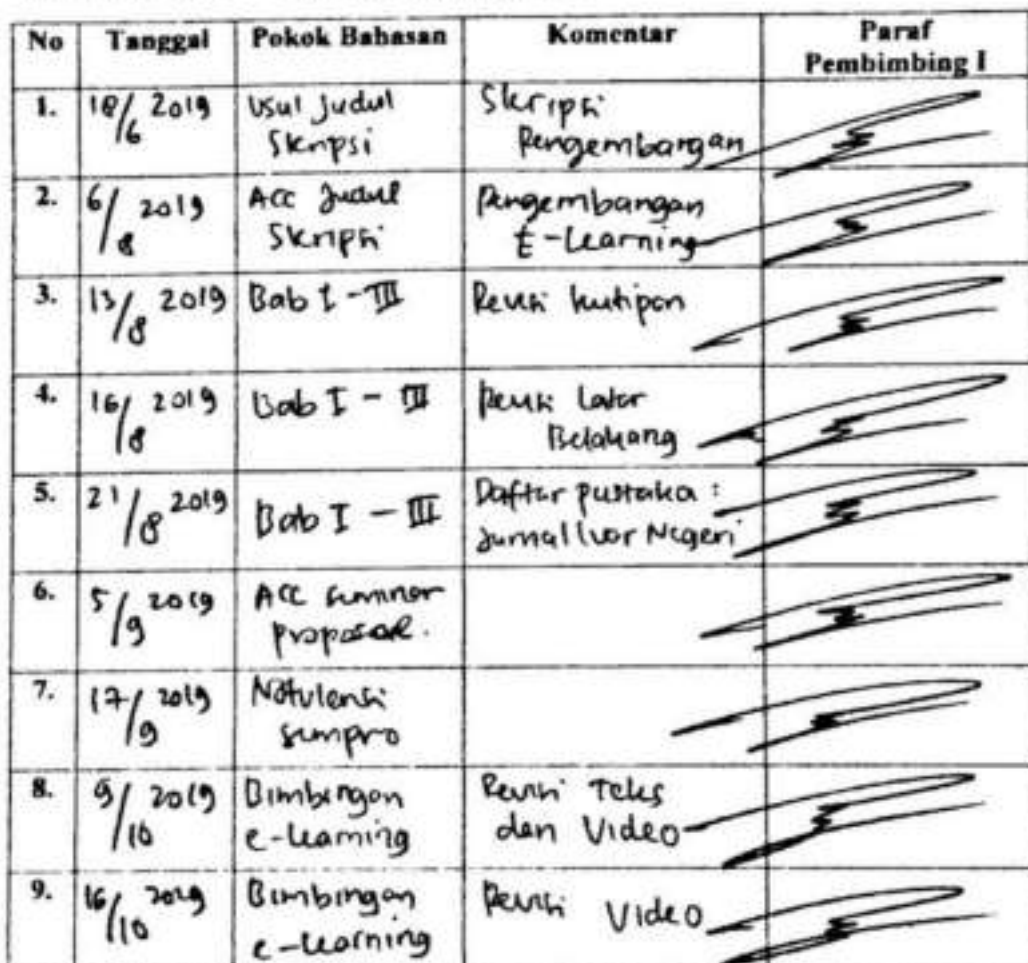 No Tanggal Pokok Bahasan Komentar Paraf
Pembimbing I
1. 18/6 2019 Usul Judul Skripsi
Skripsi Pengembangan
2. 6/8 2019 Acc Judul Skripsi
Pengembangan E-Learning
3. 13/8 2019 Bab I - III Revisi kutipan
4. 16/8 2019 Bab I - III Revisi Latar
Belakang
5. 21/8 2019 Bab I - III Daftar pustaka :
Jurnal luar Negeri
6. 5/9 2019 Acc seminar
proposal.
7. 17/9 2019 Notulensi
sempro
8. 9/10 2019 Bimbingan Revisi Teks
e-learning dan Video
9. 16/10 2019 Bimbingan Revisi Video
e-learning